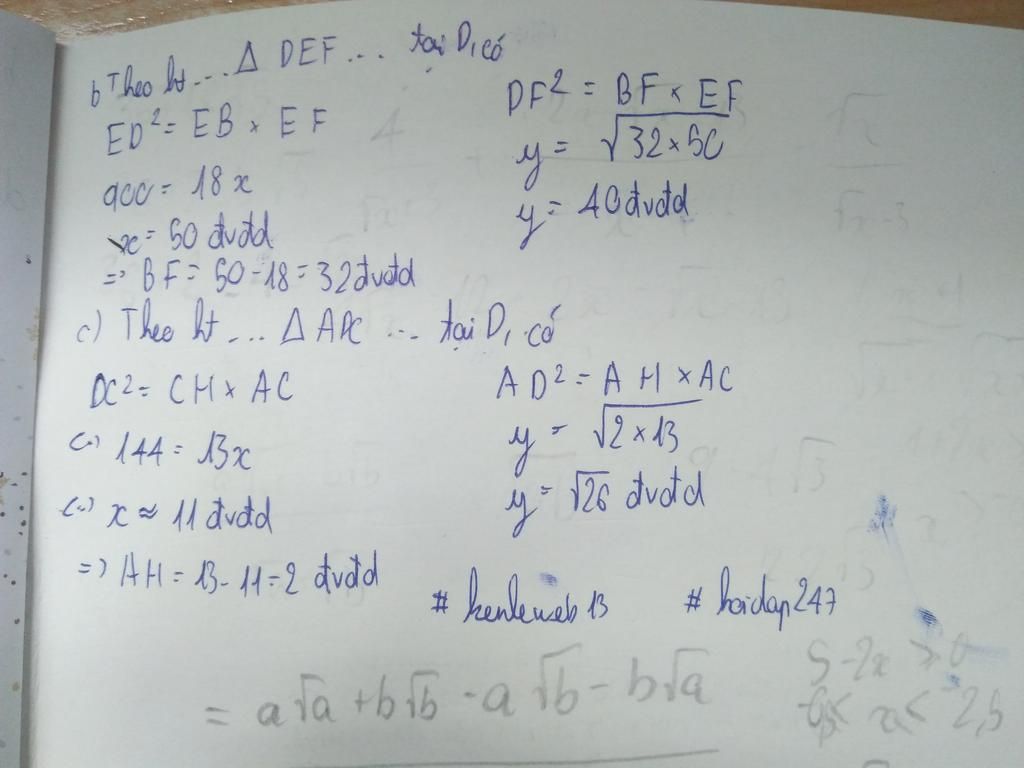 b Theo ht ... Δ DEF ... tại D, có
ED² = EB × EF
900 = 18x
x = 50 đvđd
=> BF = 50 - 18 = 32 đvđd
DF² = BF × EF
y = √32×50
y = 40 đvđd
c) Theo ht ... Δ ADC ... tại D, có
DC² = CH × AC
(=) 144 = 13x
(=) x ≈ 11 đvđd
=) AH = 13 - 11 = 2 đvđd
AD² = AH × AC
y = √2×13
y = √26 đvđd
# kenleweb13 # hoidap247
= a√a + b√b - a√b - b√a
5 - 2x > 0
x < 2,5